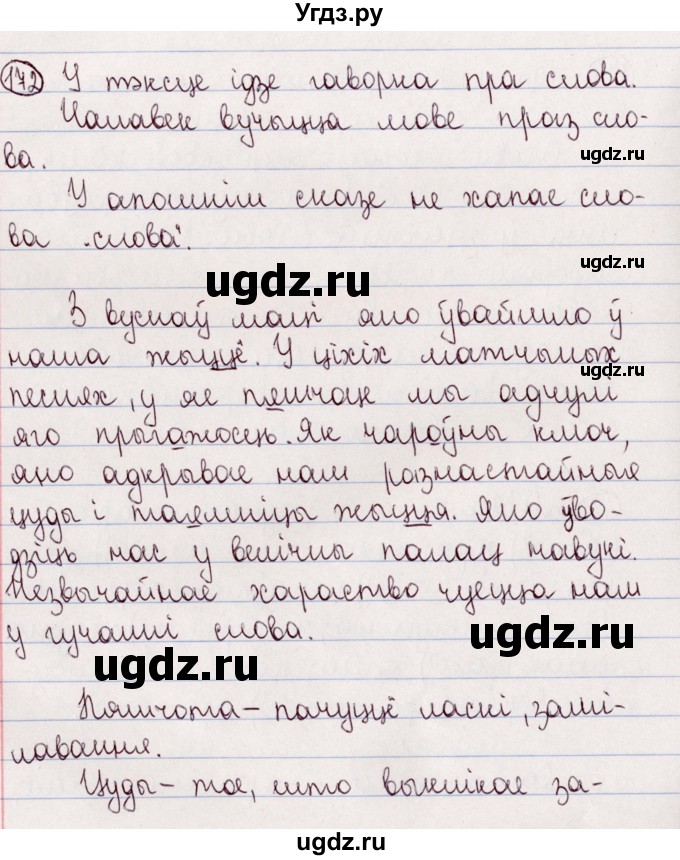 Угдз.ру
172 У тэксце ідзе гаворка пра слова.
ugdz.ru
Чалавек вучыцца мове праз сло-
ва.
ugdz.ru
У апошнім сказе не хапае сло-
ва „слова".
ugdz.ru
ugdz.ru
З вуснаў маці яно ўвайшло ў
наша жыццё. У ціхіх матчыных
ugdz.ru
песнях, у яе пяшчоце мы адчулі
яго прыгажосць. Як чароўны ключ,
яно адкрывае нам разнастайныя
цуды і таямніцы жыцця. Яно ўво-
дзіць нас у велічны палац навукі.
Незвычайнае хараство чуецца нам
у гучанні слова.
ugdz.ru
ugdz.ru
Пяшчота – пачуццё ласкі, замі-
лавання.
Цуды – тое, што выклікае за-
ugdz.ru